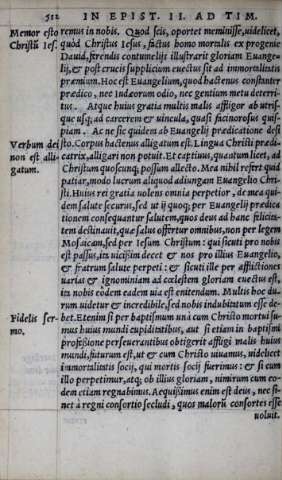 512 IN EPIST. II. AD TIM.
Memor esto remus in nobis. Quod scis, oportet meminisse, uidelicet,
Christū Ies. quòd Christus Iesus, factus homo mortalis ex progenie
Dauid, ferendis contumelijs illustrarit gloriam Euange-
lij, & post crucis supplicium euectus sit ad immortalitatis
præmium. Hoc est Euangelium, quod hactenus constanter
prædico, nec Iudæorum odio, nec gentium metu deterri-
tus. Atque huius gratia multis malis affligor ab utris-
que usq; ad carcerem & uincula, quasi facinorosus quis-
piam. Ac ne sic quidem ab Euangelij prædicatione desi
Verbum dei sto. Corpus hactenus alligatum est. Lingua Christi prædi-
non est alli- catrix, alligari non potuit. Et captiuus, quantum licet, ad
gatum. Christum quoscunq; possum allecto. Mea nihil refert quid
patiar, modo lucrum aliquod adiungam Euangelio Chri-
sti. Huius rei gratia nolens omnia perpetior, de mea qui-
dem salute securus, sed ut ij quoq; per Euangelij prædica
tionem consequantur salutem, quos deus ad hanc felicita-
tem destinauit, quæ salus offertur omnibus, non per legem
Mosaicam, sed per Iesum Christum: qui sicuti pro nobis
est passus, ita uicissim decet & nos pro illius Euangelio,
& fratrum salute perpeti: & sicuti ille per afflictiones
uarias & ignominiam ad cælestem gloriam euectus est,
ita nobis eodem eadem uia est enitendum. Multis hoc du-
rum uidetur & incredibile, sed nobis indubitatum esse de-
Fidelis ser- bet. Etenim si per baptismum unà cum Christo mortui su-
mo. mus huius mundi cupiditatibus, aut si etiam in baptismi
professione perseuerantibus obtigerit affligi malis huius
mundi, futurum est, ut & cum Christo uiuamus, uidelicet
immortalitatis socij, qui mortis socij fuerimus: & si cum
illo perpetimur, atq; ob illius gloriam, nimirum cum eo-
dem etiam regnabimus. Aequissimus enim est deus, nec si-
net à regni consortio secludi, quos malorū consortes esse
uoluit.